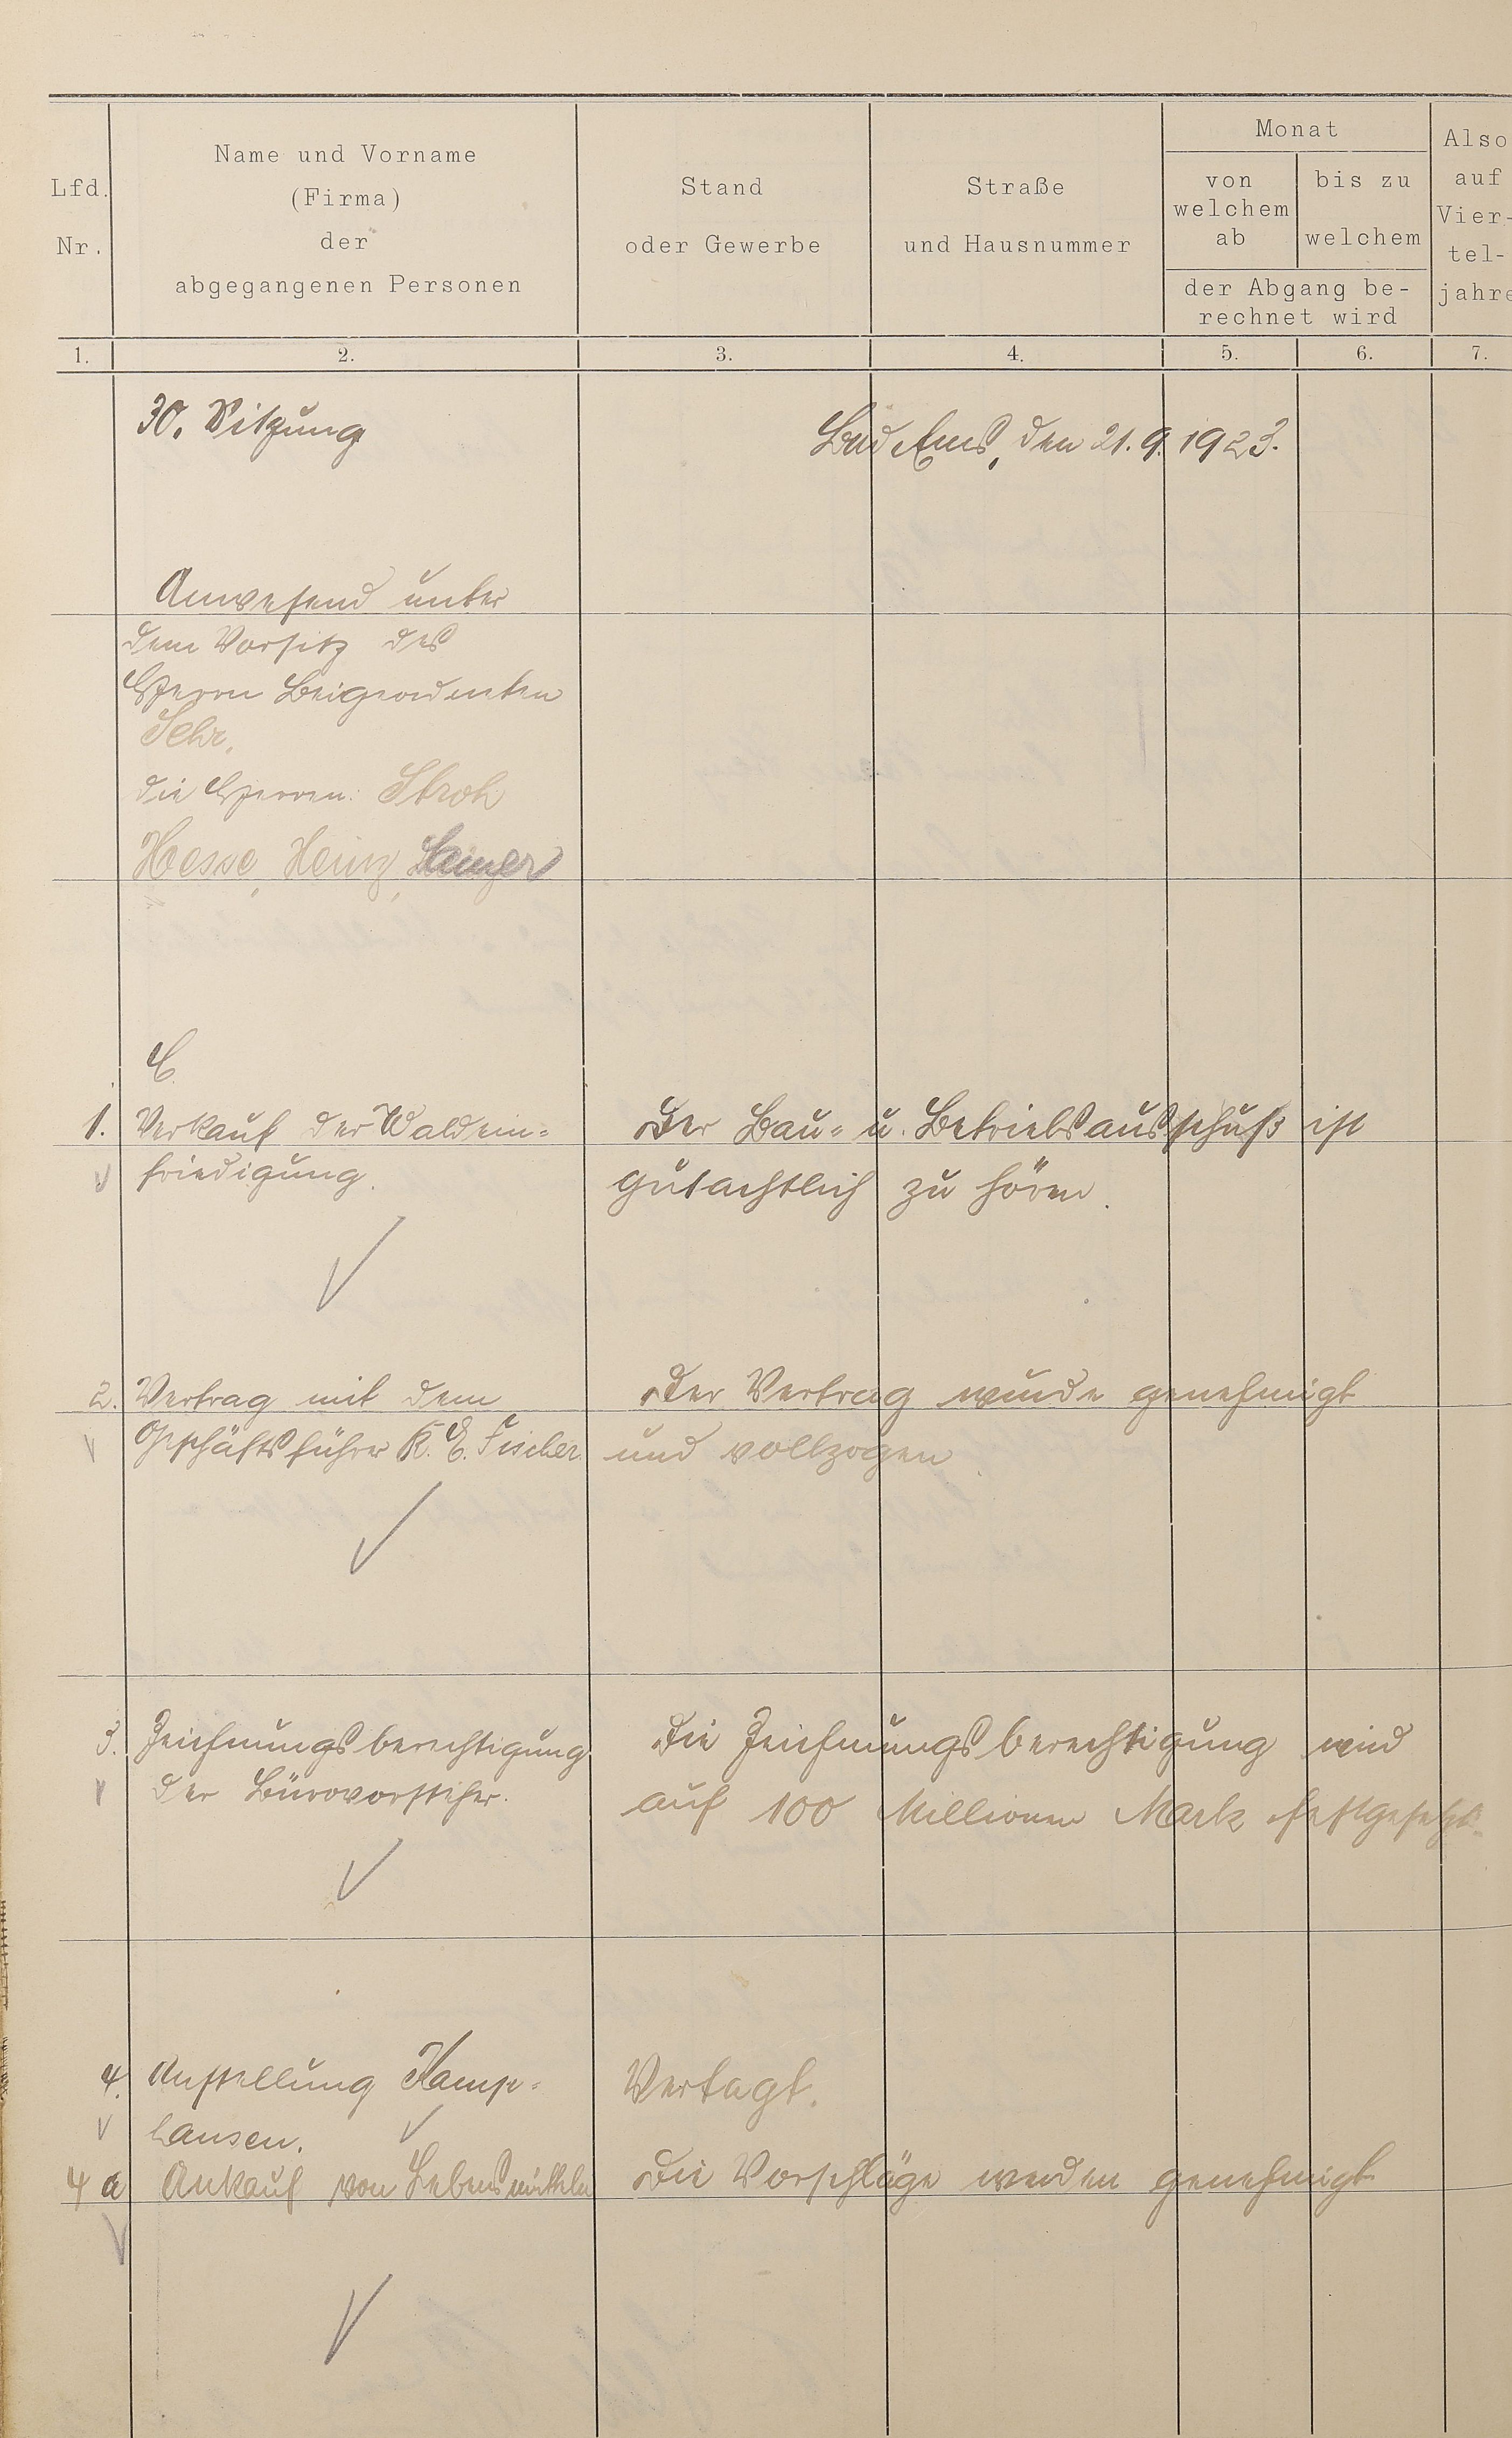 Lfd.
Nr.
Name und Vorname
(Firma)
der
abgegangenen Personen
Stand
oder Gewerbe
Straße
und Hausnummer
Monat
von
welchem
ab
bis zu
welchem
der Abgang be-
rechnet wird
Also
auf
Vier-
tel-
jahre
1. 2. 3. 4. 5. 6. 7.
30. Sitzung
Bad Ems, den 21.9.1923.
Anwesend unter
dem Vorsitz des
Herrn Beigeordneten
Sehr,
die Herren: Stroh
Hesse, Heinz,
C.
1. Verkauf der Waldein=
friedigung.
Der Bau= u. Betriebsausschuß ist
gutachtlich zu hören.
2. Vertrag mit dem
Geschäftsführer K. E. Fischer.
Der Vertrag wurde genehmigt
und vollzogen.
3. Zeichnungsberechtigung
der Bürovorsteher.
Die Zeichnungsberechtigung wird
auf 100 Millionen Mark festgesetzt.
4. Anstellung Kamp=
hausen.
Vertagt.
4 a Ankauf von Lebensmitteln
Die Vorschläge werden genehmigt